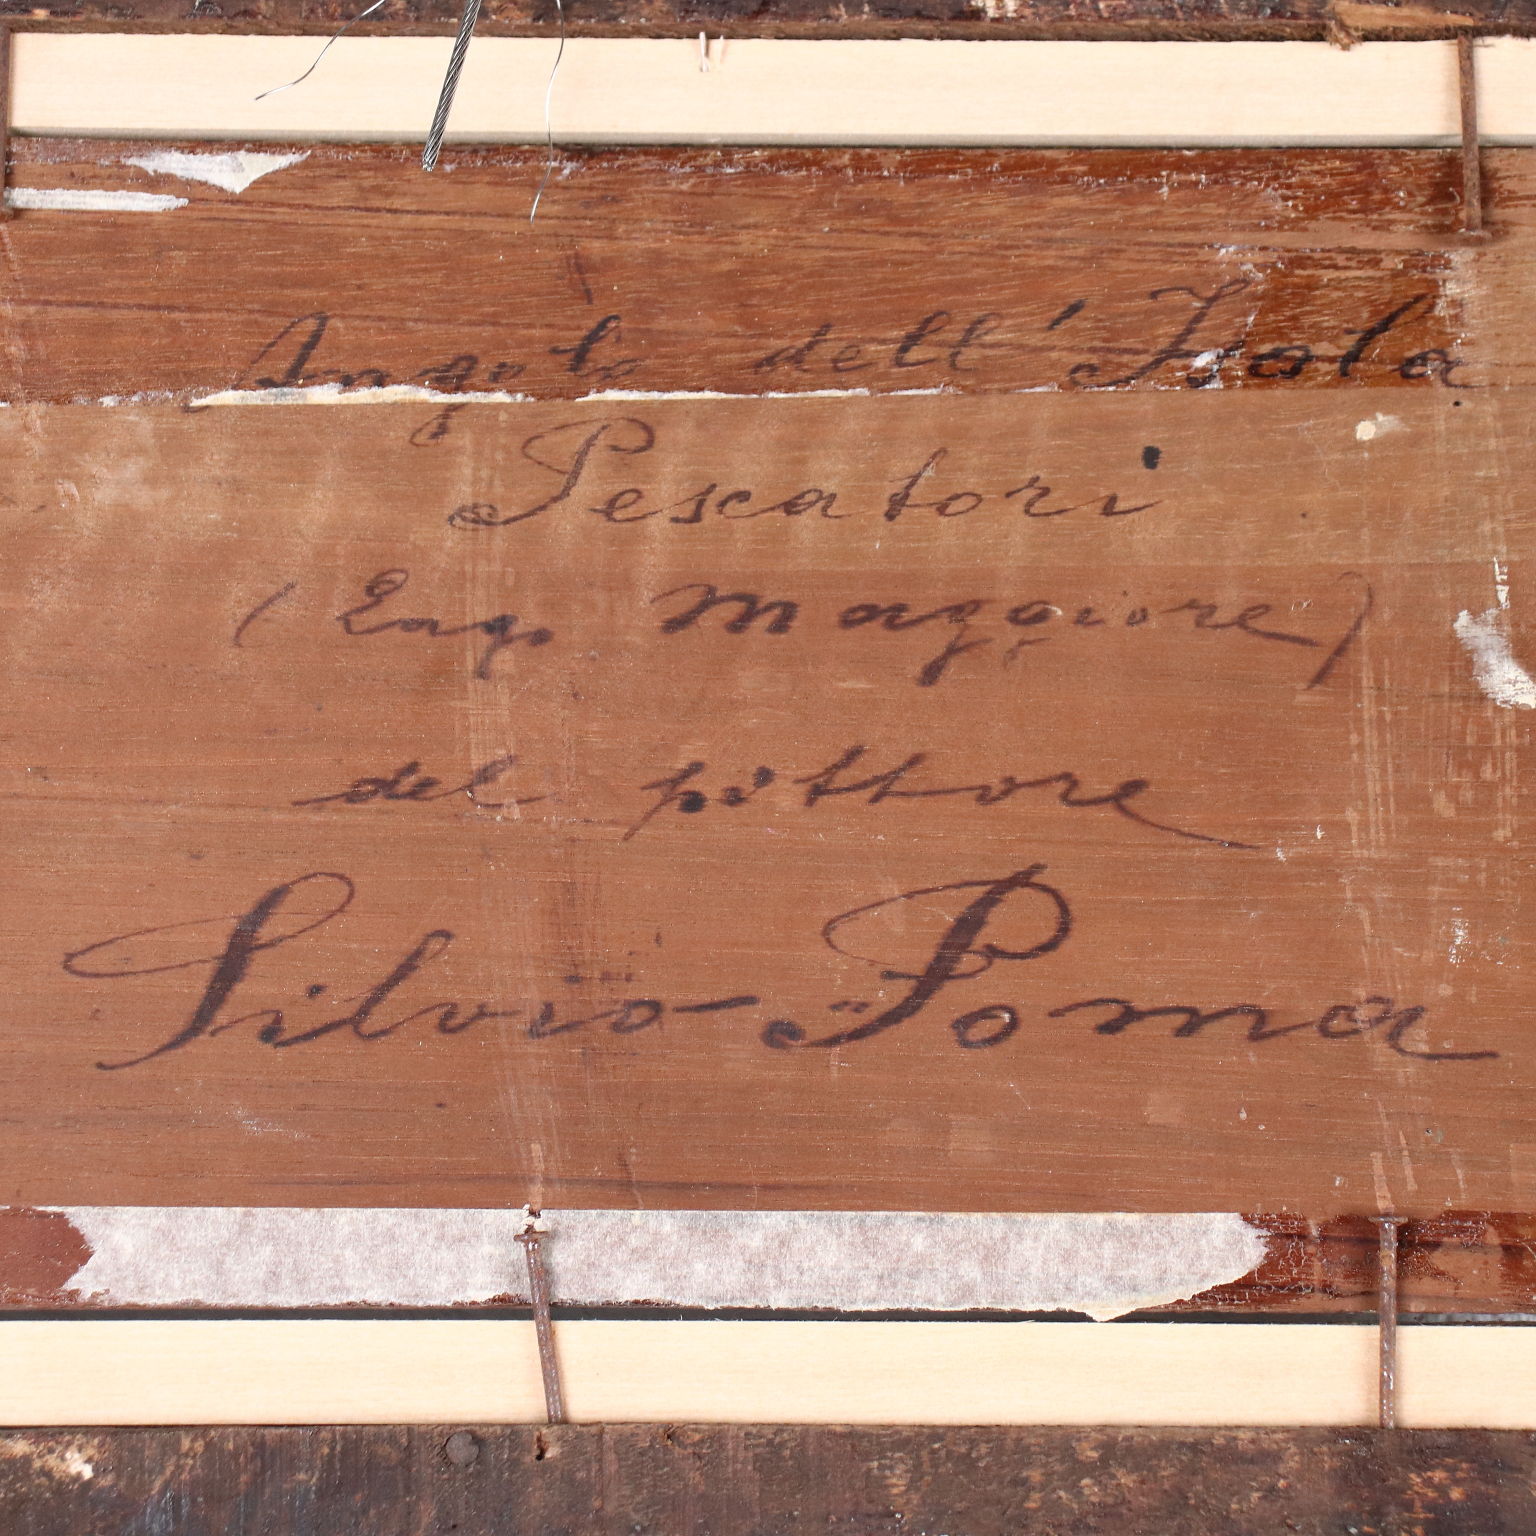 Angolo dell' Isola
Pescatori
(Lago Maggiore)
del pittore
Silvio Poma